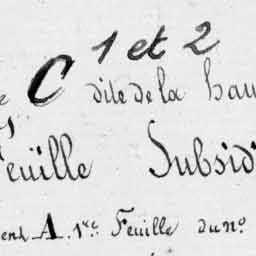 1 et 2
C dite de la hau
euille Subsid
A. 1re Feuille du no